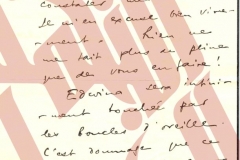 constater
Je m'en excuse bien vive-
ment. Rien ne
me fait plus de peine
que de vous en faire !
Edwina sera infini-
ment touchée par
les boucles d'oreille.
C'est dommage que ce